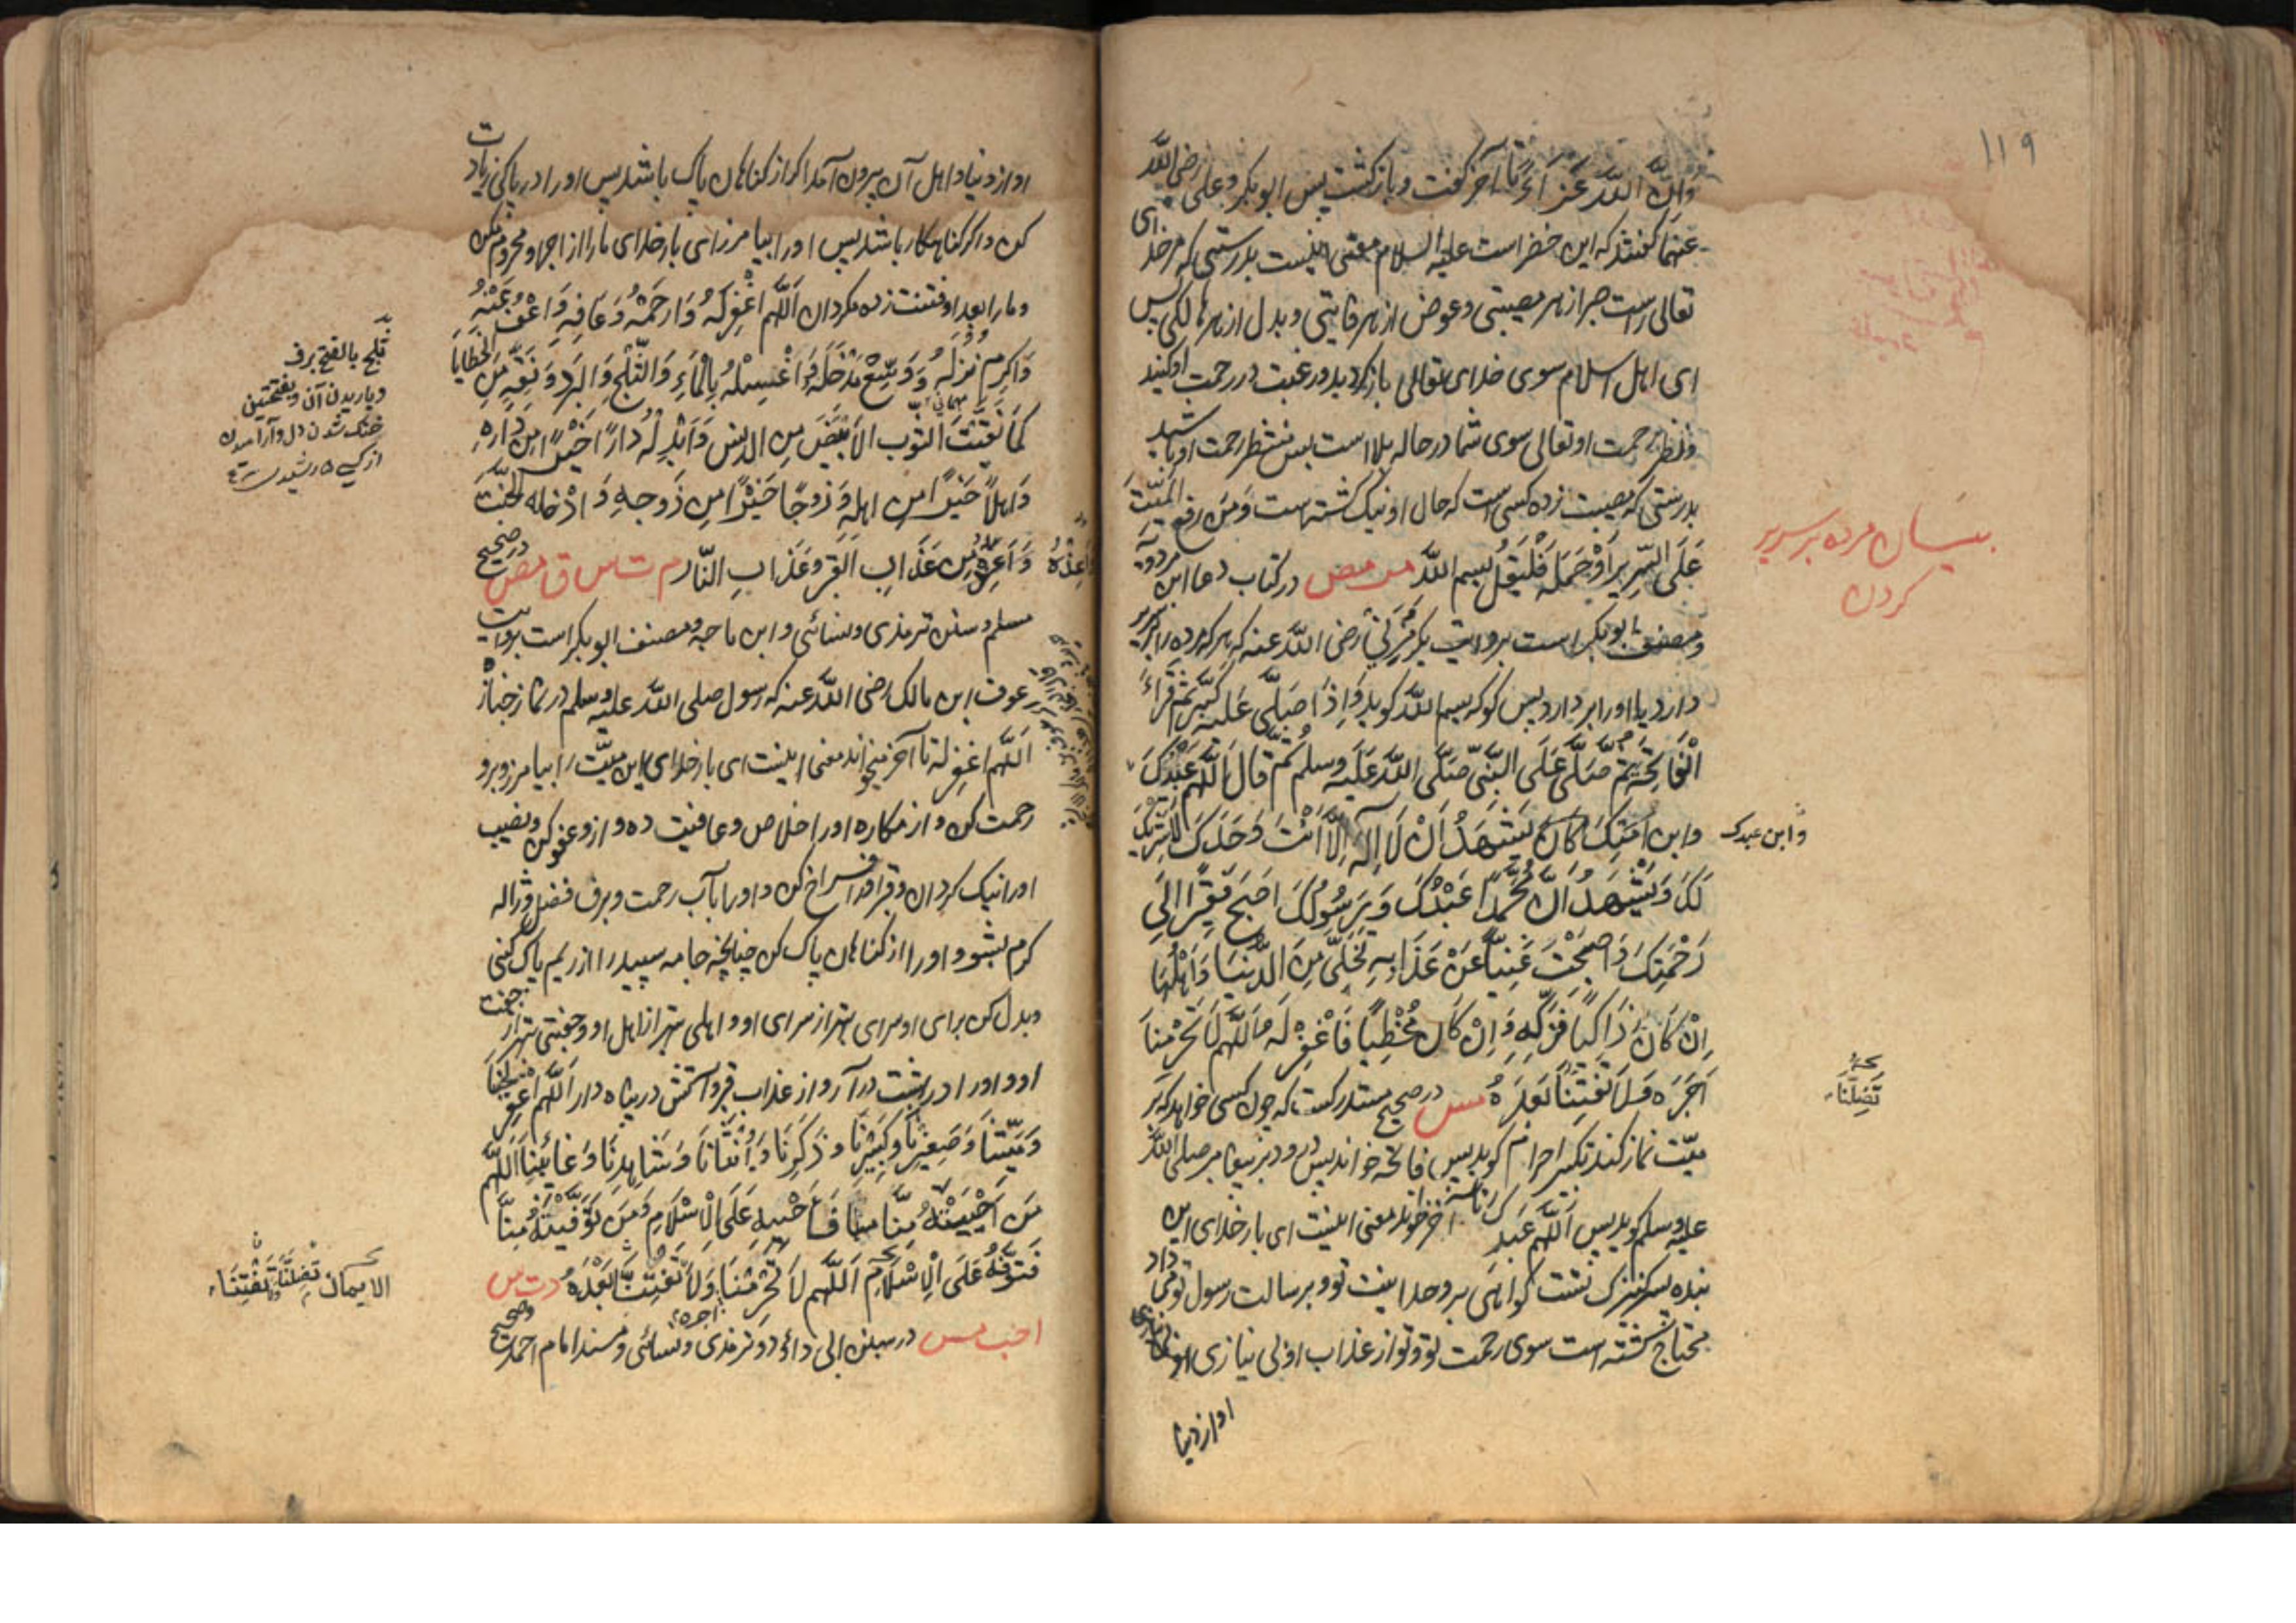 ۱۱۹
وَاِنَّ اللّٰه عَزَّ تا آخر گفت و بازگشت پس ابوبکر و علی رضی اللّٰه
عنهما گفتند که این خضر است علیه السلام معنی اینست بدرستی که مر خدای
تعالی راست صبر از هر مصیبتی و عوض از هر فایتی و بدل از هر هالکی پس
ای اهل اسلام سوی خدای تعالی بازگردید و رغبت در رحمت او کنید
و نظر رحمت او تعالی سوی شما در حاله بلا است پس منتظر رحمت او باشید
بدرستی که مصیبت زده کسی است که حال او نیک گشته است وَمَن رفع المیّت
عَلَی السَّرِیرِ اَوْ حَمَلَه فَلْیَقُل بسم اللّٰه مص در کتاب دعا ابن مردویه
و مصنف ابوبکر است بروایت بکر مزنی رضی اللّٰه عنه که هر که مرده را بر سریر
دارد یا او را بردارد پس گو که بسم اللّٰه گوید وَاِذَا صَلَّی عَلَیْه کَبَّرَ ثُمَّ قَرَاءَ
الْفَاتِحَة ثُمَّ صَلَّی عَلَی النَّبِیّ صَلَّی اللّٰه عَلَیْه وسلم ثُمَّ قَالَ اَللّٰهُم عَبْدُکَ
وابن اَمَتِکَ کَانَ یَشْهَدُ اَنْ لَا اِلٰهَ اِلَّا اَنْتَ وَحْدَکَ لَا شَرِیکَ
لَکَ وَیَشْهَدُ اَنَّ مُحَمَّدًا عَبْدُکَ وَرَسُولُکَ اَصْبَحَ فَقِیْرًا اِلَی
رَحْمَتِکَ وَاَصْبَحْتَ غَنِیًّا عَنْ عَذَابِهِ تَخَلَّی مِنَ الدُّنْیَا وَاَهْلِهَا
اِنْ کَانَ زَاکِیًا فَزَکِّهِ وَاِنْ کَانَ مُخْطِیًا فَاغْفِرْ لَه اَللّٰهُم لَا تَحْرِمْنَا
اَجْرَه وَلَا تَفْتِنَّا بَعْدَهُ مس در صحیح مستدرکست که چون کسی خواهد که بر
میّت نماز کند تکبیر احرام گوید پس فاتحه خواند پس درود بر پیغامبر صلی اللّٰه
علیه وسلم گوید پس اَللّٰهُم عَبْدُکَ تا آخر گوید معنی اینست ای بار خدای این
بنده پسر کنیزک تست گواهی بر وحدانیت تو و بر رسالت رسول تو می داد
محتاج گشته است سوی رحمت تو و تو از عذاب او بی نیازی
او از دنیا
مرده بر سریر
کردن
و ابن عبدک
تضلنا
او از دنیا و اهل آن بیرون آمد اگر از گناهان پاک باشد پس او را در پاکی زیادت
کن و اگر گناهکار باشد پس او را بیامرز ای بار خدای ما را از اجر او محروم مکن
و ما را بعد او فتنت زده مگردان اَللّٰهُم اغْفِرْ لَهُ وَارْحَمْهُ وَعَافِهِ وَاعْفُ عَنْهُ
وَاَکْرِم نُزُلَهُ وَوَسِّعْ مُدْخَلَهُ وَاغْسِلْهُ بِالْمَاءِ وَالثَّلْجِ وَالْبَرَدِ وَنَقِّهِ مِنَ الْخَطَایَا
کَمَا نَقَّیْتَ الثَّوبَ الاَبْیَضَ مِنَ الدنس وَاَبْدِلْهُ دَارًا خَیْرًا مِن دَارِهِ
وَاَهلًا خَیْرًا مِن اهلِهِ وَزَوجًا خَیْرًا مِن زَوجِهِ وَاَدْخِله الجَنَّةَ
وَاَعِذْهُ مِنْ عَذَابِ القَبْرِ وَعَذَابِ النَّار م ت س ق مص در صحیح
مسلم و سنن ترمذی و نسائی و ابن ماجه و مصنف ابوبکر است بروایت
عوف ابن مالک رضی اللّٰه عنه که رسول صلی اللّٰه علیه وسلم در نماز جنازه
اَللّٰهُم اغْفِرْ له تا آخر میخواند معنی اینست ای بار خدای این میّت را بیامرز و برو
رحمت کن و از مکاره او را خلاص و عافیت ده و ازو عفو کن و نصیب
او را نیک گردان و قبر او را فراخ کن و او را بآب رحمت و برف فضل و ژاله
کرم بشو و او را از گناهان پاک کن چنانچه جامه سپید را از ریم پاک کنی
و بدل کن برای او سرای بهتر از سرای او و اهلی بهتر از اهل او و جفتی بهتر از جفت
او و او را در بهشت درآر و از عذاب قبر و آتش در پناه دار اَللّٰهُم اغْفِرْ لِحَیِّنَا
وَمَیِّتِنَا وَصَغِیرِنَا وَکَبِیْرِنَا وَذَکَرِنَا وَاُنْثَانَا وَشَاهِدِنَا وَغَائِبِنَا اَللّٰهُم
مَن اَحْیَیْتَهُ مِنَّا فَاَحْیِه عَلَی الْاِسْلَامِ وَمَن تَوَفَّیْتَهُ مِنَّا
فَتَوَفَّهُ عَلَی الْاِسْلَامِ اَللّٰهُم لَا تَحْرِمْنَا اجره وَلَا تَفْتِنَّا بَعْدَهُ د ت س
ا حب مس در سنن ابی داؤد و ترمذی و نسائی و مسند امام احمد و صحیح
ثلج بالفتح برف
و باریدن آن و بفتحتین
خنک شدن دل و آرامیدن
الایمان تضلنا تفتنا